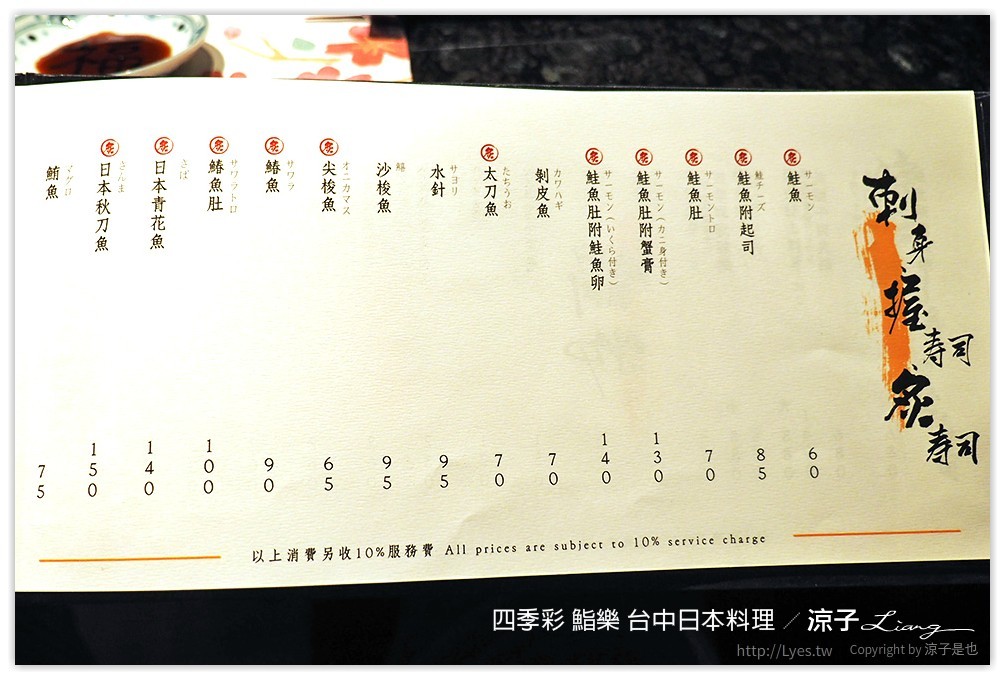 刺身握寿司炙寿司
炙 鮭魚 サーモン 60
炙 鮭魚附起司 鮭チーズ 85
炙 鮭魚肚 サーモントロ 70
炙 鮭魚肚附蟹膏 サーモン(カニ身付き) 130
炙 鮭魚肚附鮭魚卵 サーモン(いくら付き) 140
剝皮魚 カワハギ 70
炙 太刀魚 たちうお 70
水針 サヨリ 95
沙梭魚 95
炙 尖梭魚 オニカマス 65
炙 鰆魚 サワラ 90
炙 鰆魚肚 サワラトロ 100
炙 日本青花魚 さば 140
炙 日本秋刀魚 さんま 150
鮪魚 マグロ 75
以上消費另收10%服務費 All prices are subject to 10% service charge
四季彩 鮨樂 台中日本料理 / 涼子 Liang
http://Lyes.tw Copyright by 涼子是也